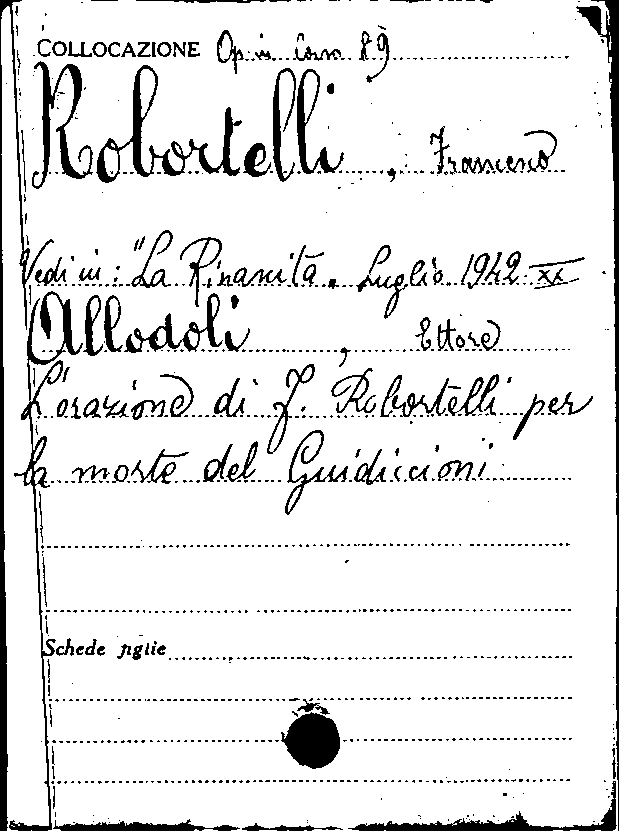 COLLOCAZIONE Op. in Corso 89
Robortelli, Francesco
Vedi in: "La Rinascita" Luglio 1942 XX
Allodoli, Ettore
L'orazione di F. Robortelli per
la morte del Guidiccioni
Schede figlie